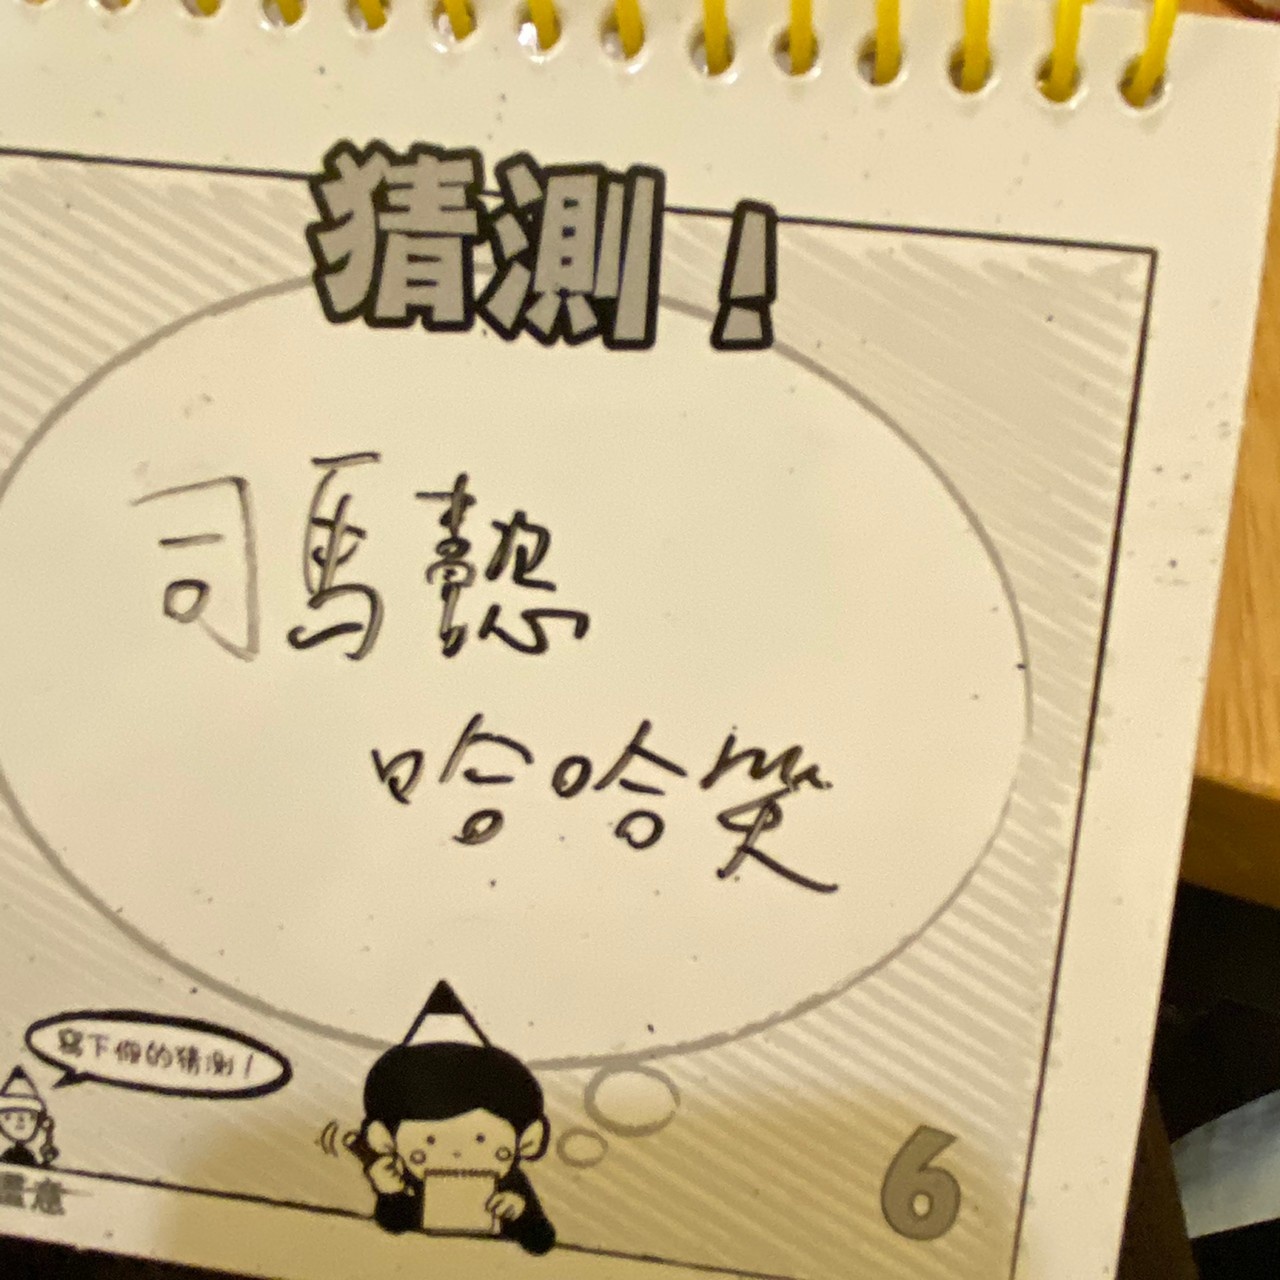 猜測！
司馬懿
哈哈笑
寫下你的猜測！
6